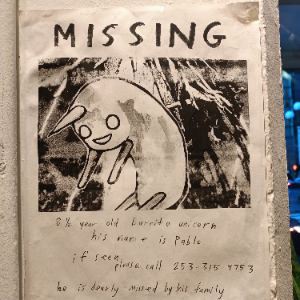 MISSING
8½ year old burrito unicorn
his name is Pablo
if seen
please call 253-315 9753
he is dearly missed by his family